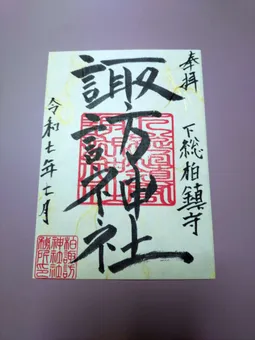 奉拝
下総柏鎮守
諏訪神社
令和七年十一月
柏諏訪
神社社
務所印